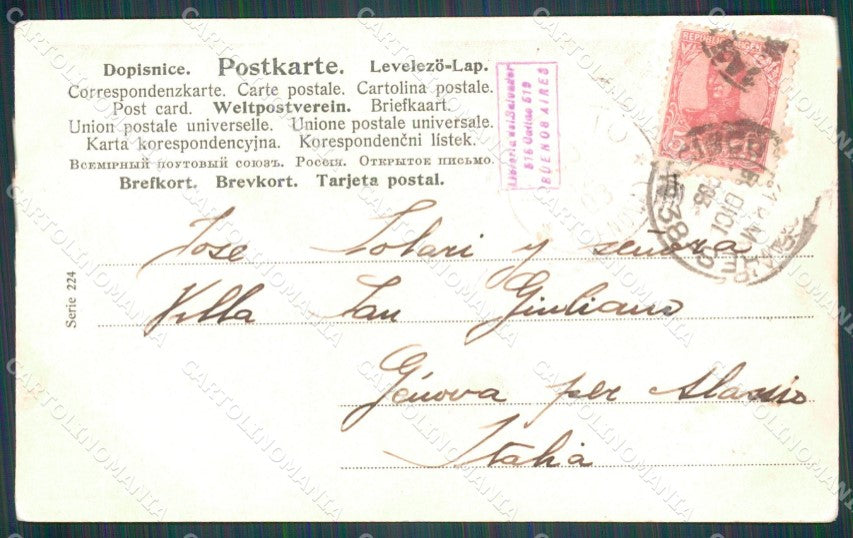 Dopisnice. Postkarte. Levelezö-Lap.
Correspondenzkarte. Carte postale. Cartolina postale.
Post card. Weltpostverein. Briefkaart.
Union postale universelle. Unione postale universale.
Karta korespondencyjna. Korespondenčni listek.
Всемірный почтовый союзъ. Россія. Открытое письмо.
Brefkort. Brevkort. Tarjeta postal.
BUENOS AIRES
REPUBLICA
Serie 224
Jose Solari y señora
Villa San Giuliano
Génova per Alassio
Italia
CARTOLINOMANIA